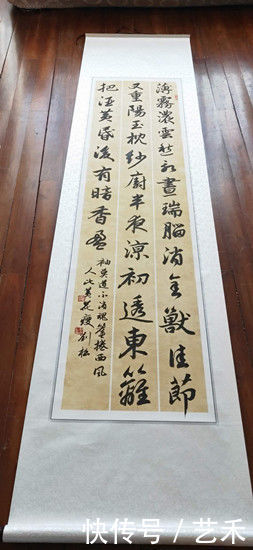 薄霧濃雲愁永晝瑞腦消金獸佳節
又重陽玉枕紗廚半夜涼初透東籬
把酒黃昏後有暗香盈
袖莫道不消魂簾捲西風
人比黃花瘦
快传号 / 艺禾